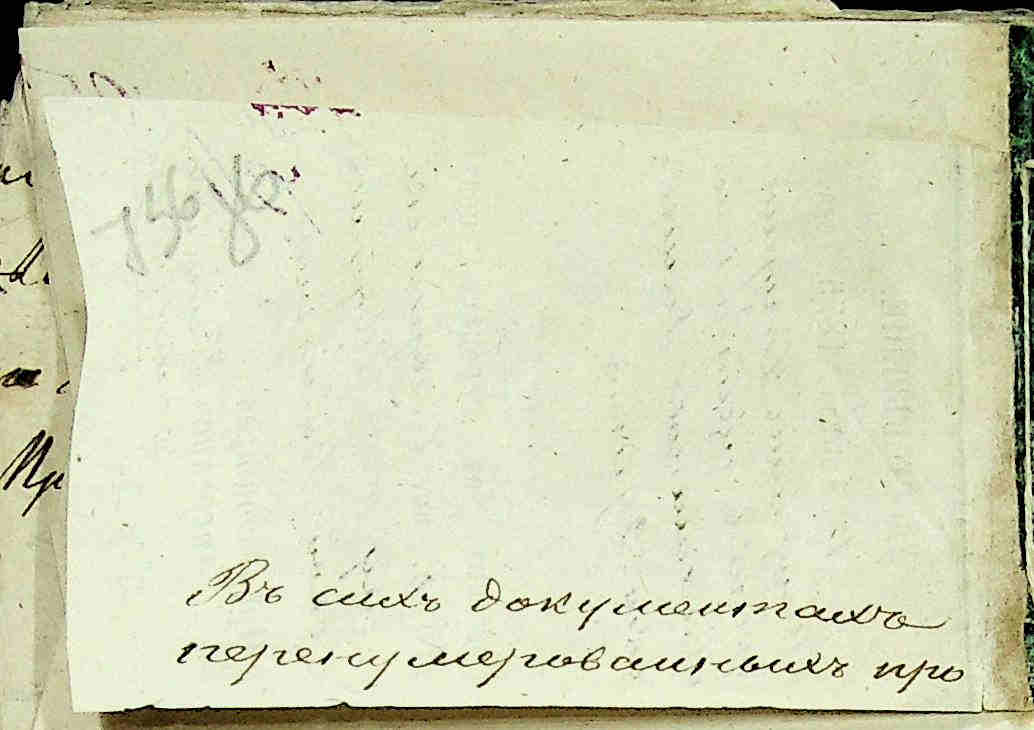 Въ сихъ документахъ
перенумерованныхъ про